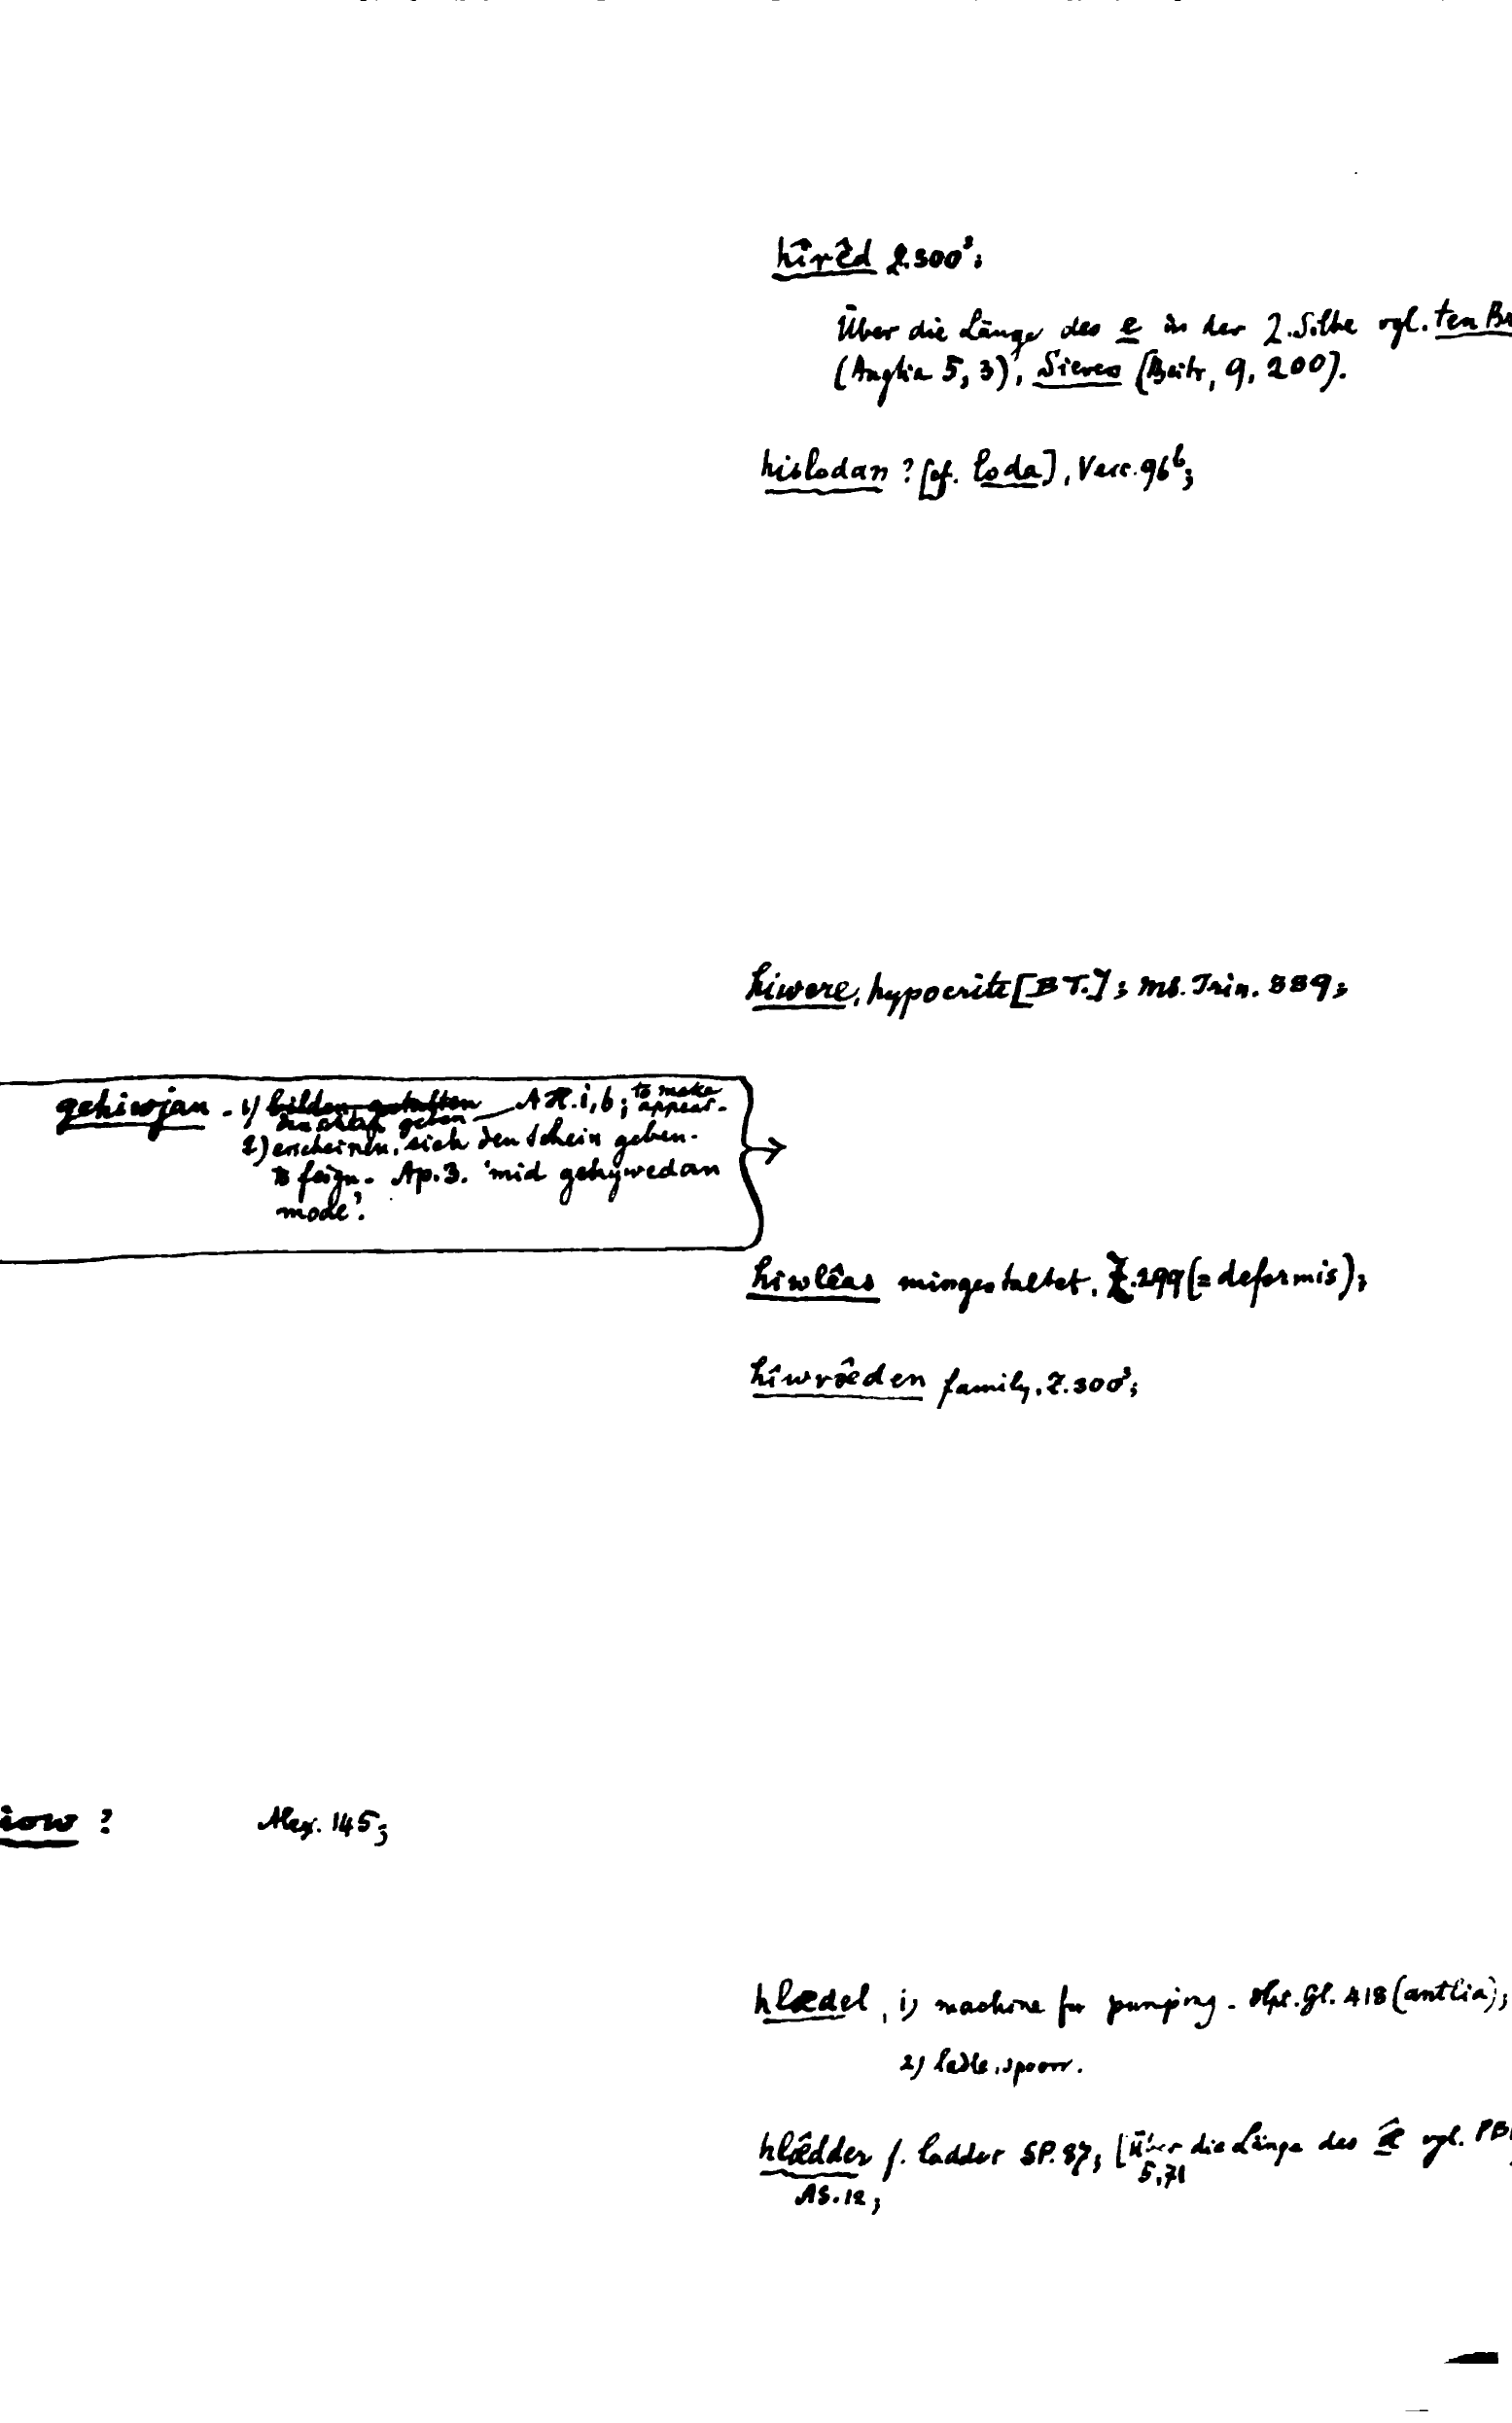 hîrêd Z.300³;
Über die Länge des e in der 2. Silbe vgl. ten Br
(Anglia 5, 3), Sievers (Beitr, 9, 200).
hislodan? [cf. loda], Verc. 96b;
hiwere, hypocrite [BT.]; Ms. Trin. 889;
gehiwjan - 1) bilden, gestalten AH. i, 6; to make appear-
geben
2) erscheinen, sich den Schein geben.
to feign - Ap. 3. 'mid gehywedan
mode'.
hiwlêas missgestaltet, Z. 299 (= deformis);
hîwrǣden family, Z. 300³;
iow? Alex. 145;
hlædel, 1) machine for pumping - Hpt. Gl. 418 (antlia);
2) ladle, spoon.
hlǣdder f. ladder SP. 87; [Über die Länge des ǣ vgl. PB
5, 71
AS. 12;